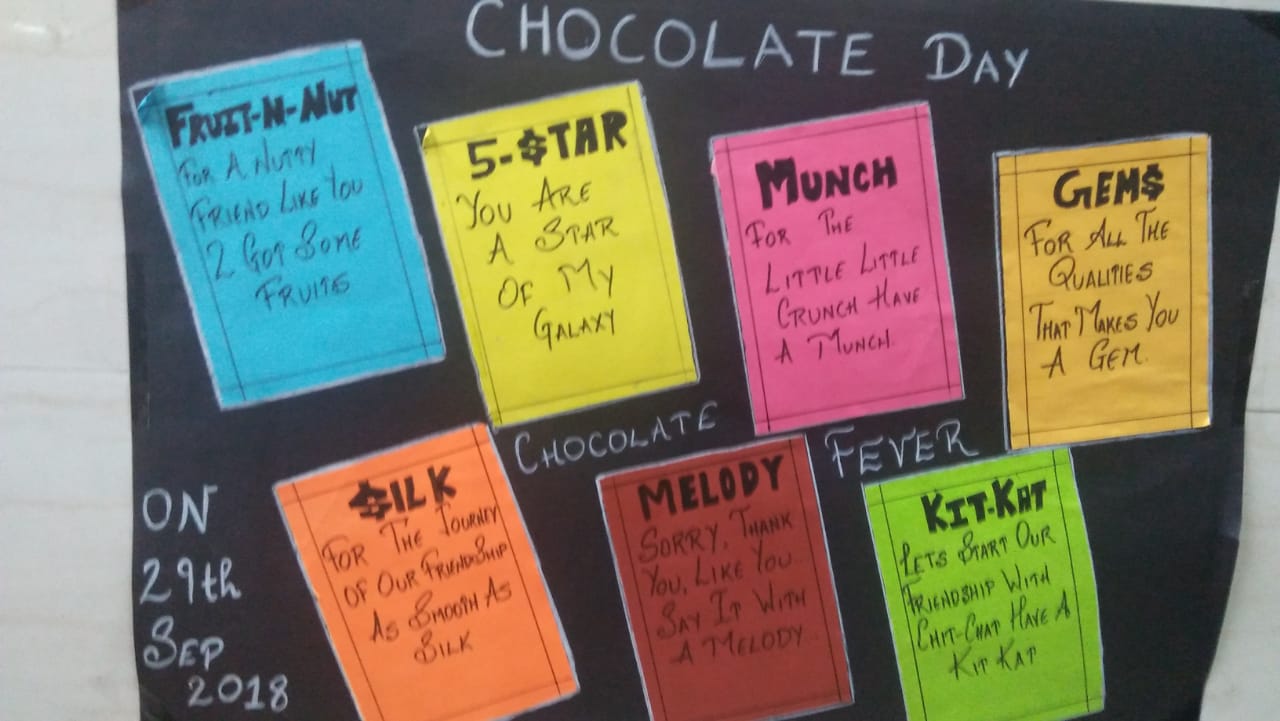 CHOCOLATE DAY
FRUIT-N-NUT
FOR A NUTTY
FRIEND LIKE YOU
2 GOT SOME
FRUITS
5-$TAR
YOU ARE
A STAR
OF MY
GALAXY
MUNCH
FOR THE
LITTLE LITTLE
CRUNCH HAVE
A MUNCH.
GEM$
FOR ALL THE
QUALITIES
THAT MAKES YOU
A GEM.
CHOCOLATE FEVER
ON
29th
SEP
2018
$ILK
FOR THE JOURNEY
OF OUR FRIENDSHIP
AS SMOOTH AS
SILK
MELODY
SORRY, THANK
YOU, LIKE YOU
SAY IT WITH
A MELODY
KIT-KAT
LETS START OUR
FRIENDSHIP WITH
CHIT-CHAT HAVE A
KIT KAT